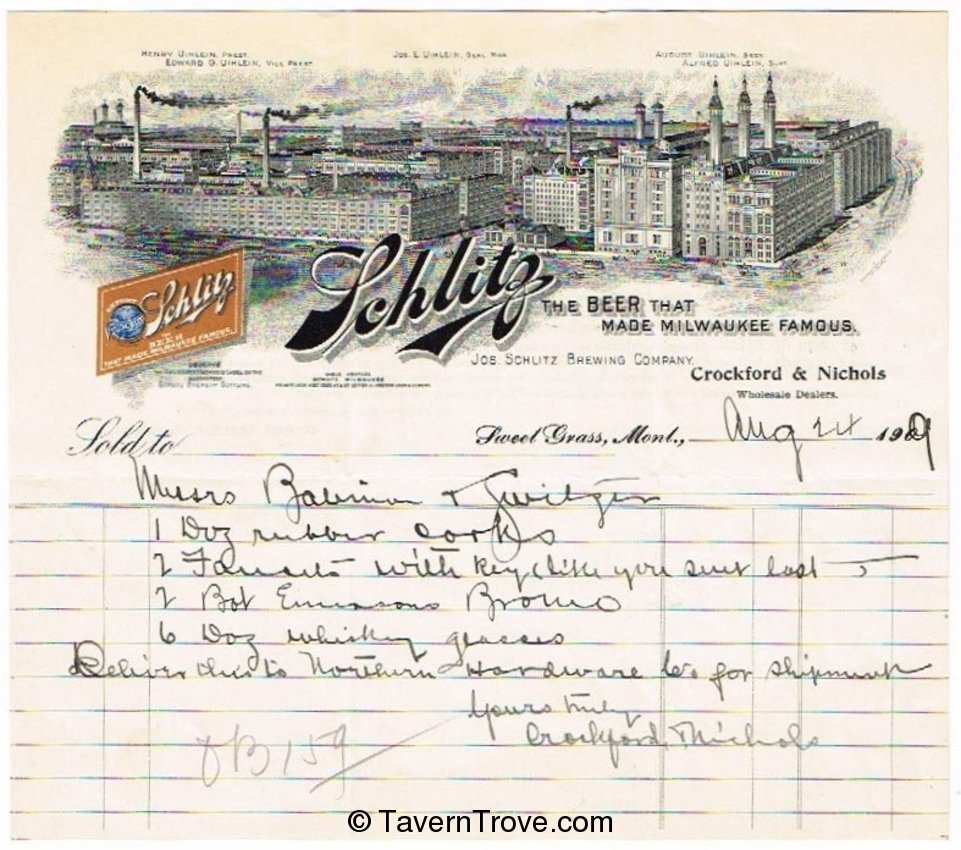 HENRY UIHLEIN, PREST.
EDWARD G. UIHLEIN, VICE PREST.
JOS. E. UIHLEIN, GENL MGR.
AUGUST UIHLEIN, SECY
ALFRED UIHLEIN, SUPT
Schlitz
THE BEER THAT
MADE MILWAUKEE FAMOUS.
Schlitz
BEER
THAT MADE MILWAUKEE FAMOUS.
JOS. SCHLITZ BREWING COMPANY.
Crockford & Nichols
Wholesale Dealers.
Sold to
Sweet Grass, Mont., Aug 24 1909
Messrs & Switzer
1 Doz rubber corks
2 Faucets with key (like you sent last
2 Bot Emersons Bromo
6 Doz whiskey glasses
Deliver this to Northern Hardware Co for shipment
Yours truly
Crockford & Nichols
© TavernTrove.com